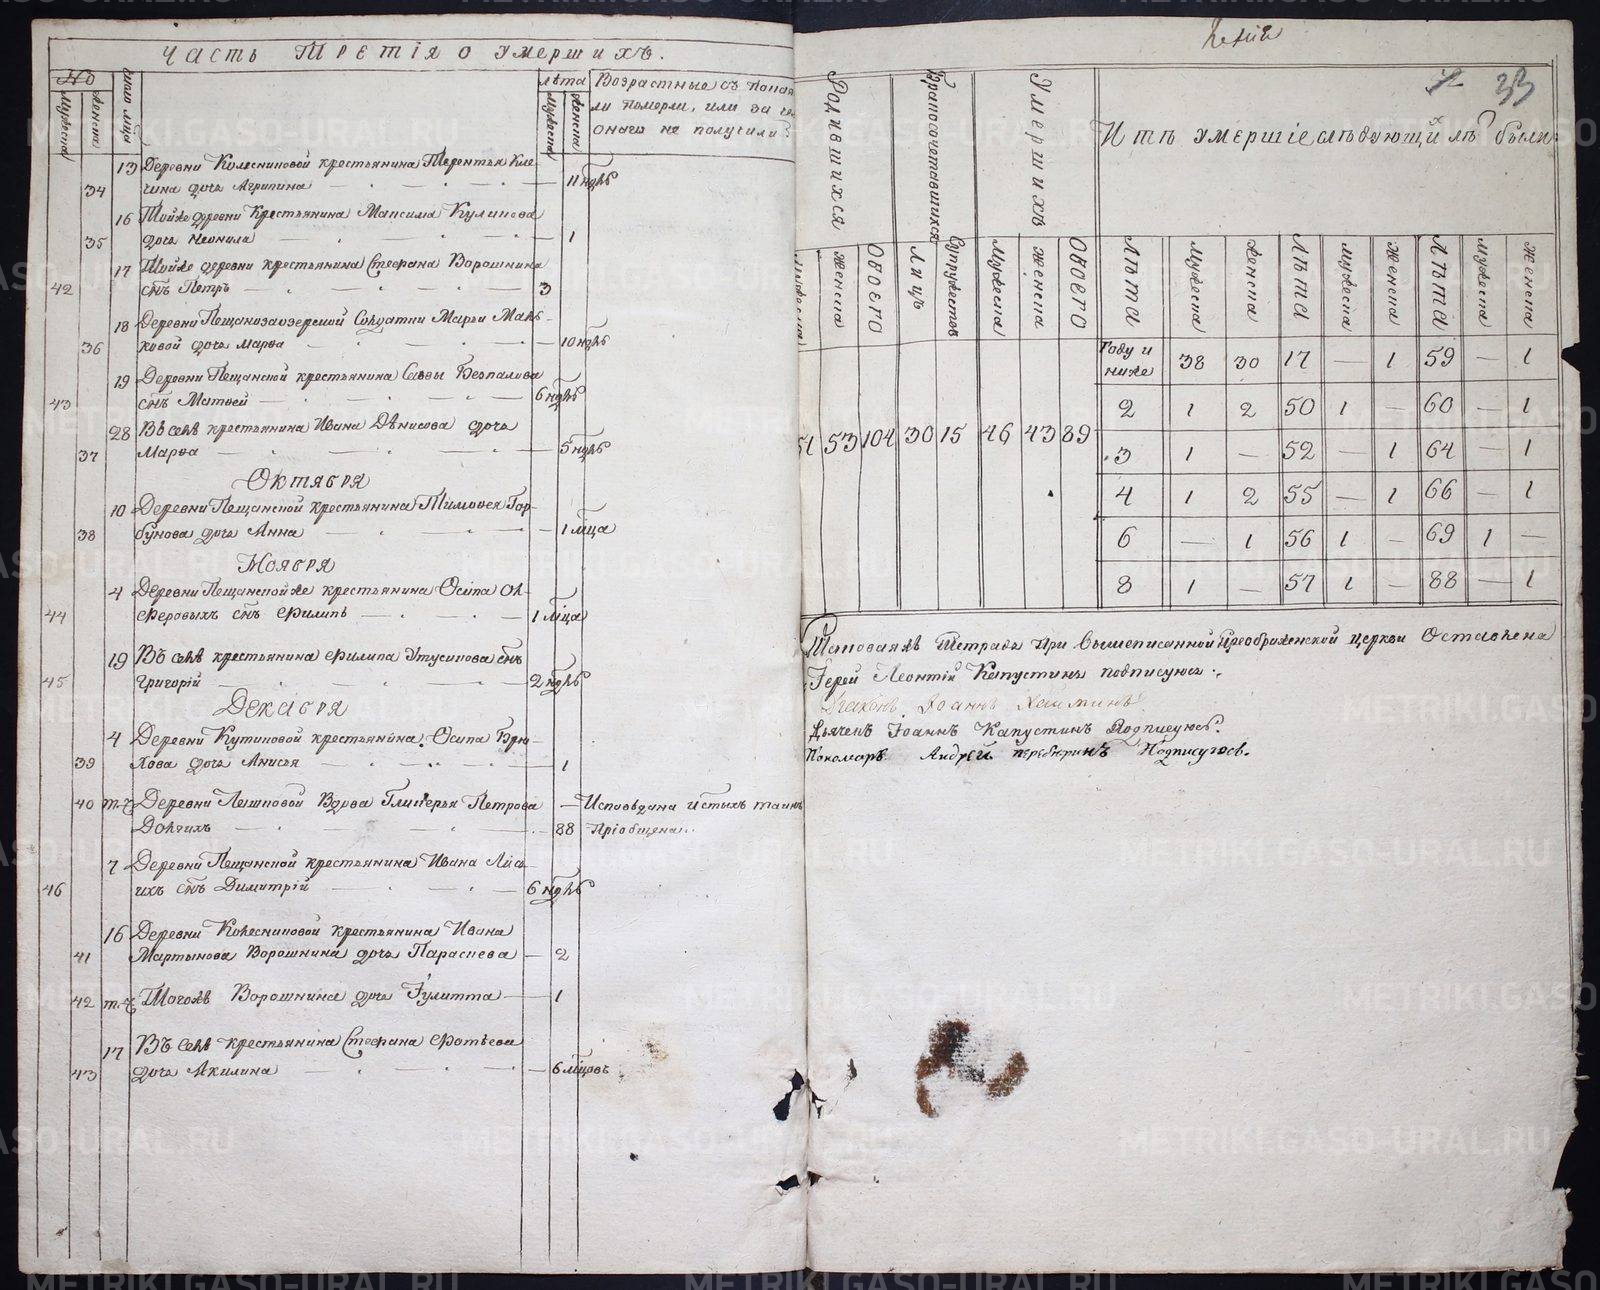 Часть Третiя о умершихъ.
№
Мужеска
Женска
Число
лѣта
Мужеска
Женска
Возрастные съ покая
ли померли, или за
онаго не получили
34 13 Деревни Колесниковой крестьянина Терентья Кле-
дочь Агрипина — 11 ндль
35 16 Тойже деревни Крестьянина Максима Куликова
дочь Неонила — 1
42 17 Тойже деревни крестьянина Стефана Ворошнина
снъ Петръ — 3
36 18 Деревни Пещаноозерской Солдатки Марьи Малы-
ковой дочь Марѳа — 10 ндль
43 19 Деревни Пещанской крестьянина Савы Безпалова
снъ Матвей — 6 ндль
37 28 Въ селѣ крестьянина Ивана Дѣнисова дочь
Марѳа — 5 ндль
Октября
38 10 Деревни Пещанской крестьянина Тимоѳея Гор-
бунова дочь Анна — 1 мца
Ноября
44 4 Деревни Пещанскойже крестьянина Осипа Ол-
феровыхъ снъ Филипъ — 1 мца
45 19 Въ селѣ крестьянина Филипа Утусикова снъ
Григорiй — 2 ндль
Декабря
39 4 Деревни Кутиковой крестьянина Осипа Брю-
хова дочь Анисья — 1
40 т.ч. Деревни Лешковой Вдова Гликерья Петрова — Исповѣдана и стыхъ таинъ
Долгихъ — 88 Прiобщена.
46 7 Деревни Пещанской крестьянина Ивана Лиса-
ихъ снъ Димитрiй — 6 ндль
41 16 Деревни Колесниковой крестьянина Ивана
Мартынова Ворошнина дочь Параскева — 2
42 т.ч. Тогожъ Ворошнина дочь Iулитта — 1
43 17 Въ селѣ крестьянина Стефана Фотѣева
дочь Акилина — 6 мцовъ
33
Родившихся
Бракосочетавшихся
Умершихъ
Итѣ умершiе слѣдующихъ лѣтъ были
Женска
Обоего
Лицъ
Супружествъ
Мужеска
Женска
Обоего
Лѣта
Мужеска
Женска
Лѣта
Мужеска
Женска
Лѣта
Мужеска
Женска
51 53 104 30 15 46 43 89
Году и ниже 38 30 17 — 1 59 — 1
2 1 2 50 1 — 60 — 1
3 1 — 52 — 1 64 — 1
4 1 2 55 — 1 66 — 1
6 — 1 56 1 — 69 1 —
8 1 — 57 1 — 88 — 1
Таковаяжъ Тетрадь при вышеписанной Преображенской церкви Оставлена
Iерей Леонтiй Капустинъ подписуюсь.
Дiаконъ Iоаннъ
Дьячекъ Iоаннъ Капустинъ Подписуюсь.
Пономарь Андрей Перебяринъ Подписуюсь.